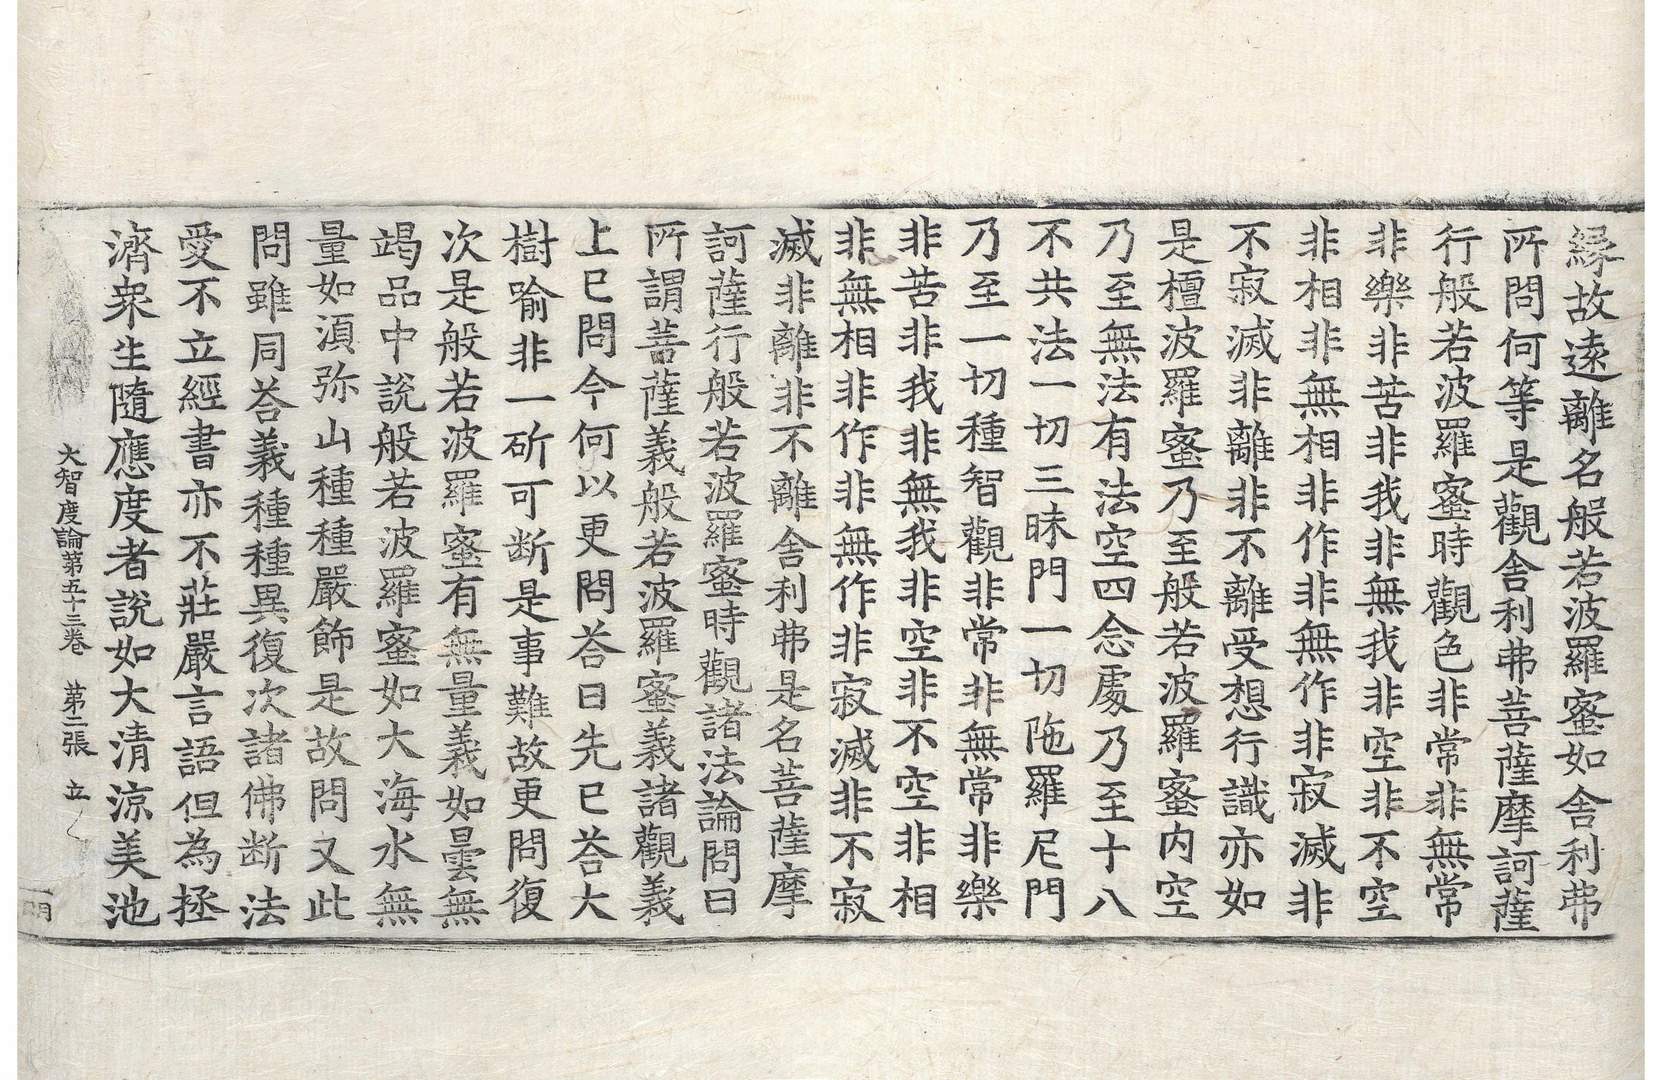 緣故遠離名般若波羅蜜如舍利弗
所問何等是觀舍利弗菩薩摩訶薩
行般若波羅蜜時觀色非常非無常
非樂非苦非我非無我非空非不空
非相非無相非作非無作非寂滅非
不寂滅非離非不離受想行識亦如
是檀波羅蜜乃至般若波羅蜜内空
乃至無法有法空四念處乃至十八
不共法一切三昧門一切陁羅尼門
乃至一切種智觀非常非無常非樂
非苦非我非無我非空非不空非相
非無相非作非無作非寂滅非不寂
滅非離非不離舍利弗是名菩薩摩
訶薩行般若波羅蜜時觀諸法論問曰
所謂菩薩義般若波羅蜜義諸觀義
上已問今何以更問荅曰先已荅大
樹喻非一斫可断是事難故更問復
次是般若波羅蜜有無量義如曇無
竭品中說般若波羅蜜如大海水無
量如湏弥山種種嚴飾是故問又此
問雖同荅義種種異復次諸佛断法
愛不立經書亦不莊嚴言語但為拯
濟衆生隨應度者說如大清涼美池
大智度論第五十三卷 第二張 立